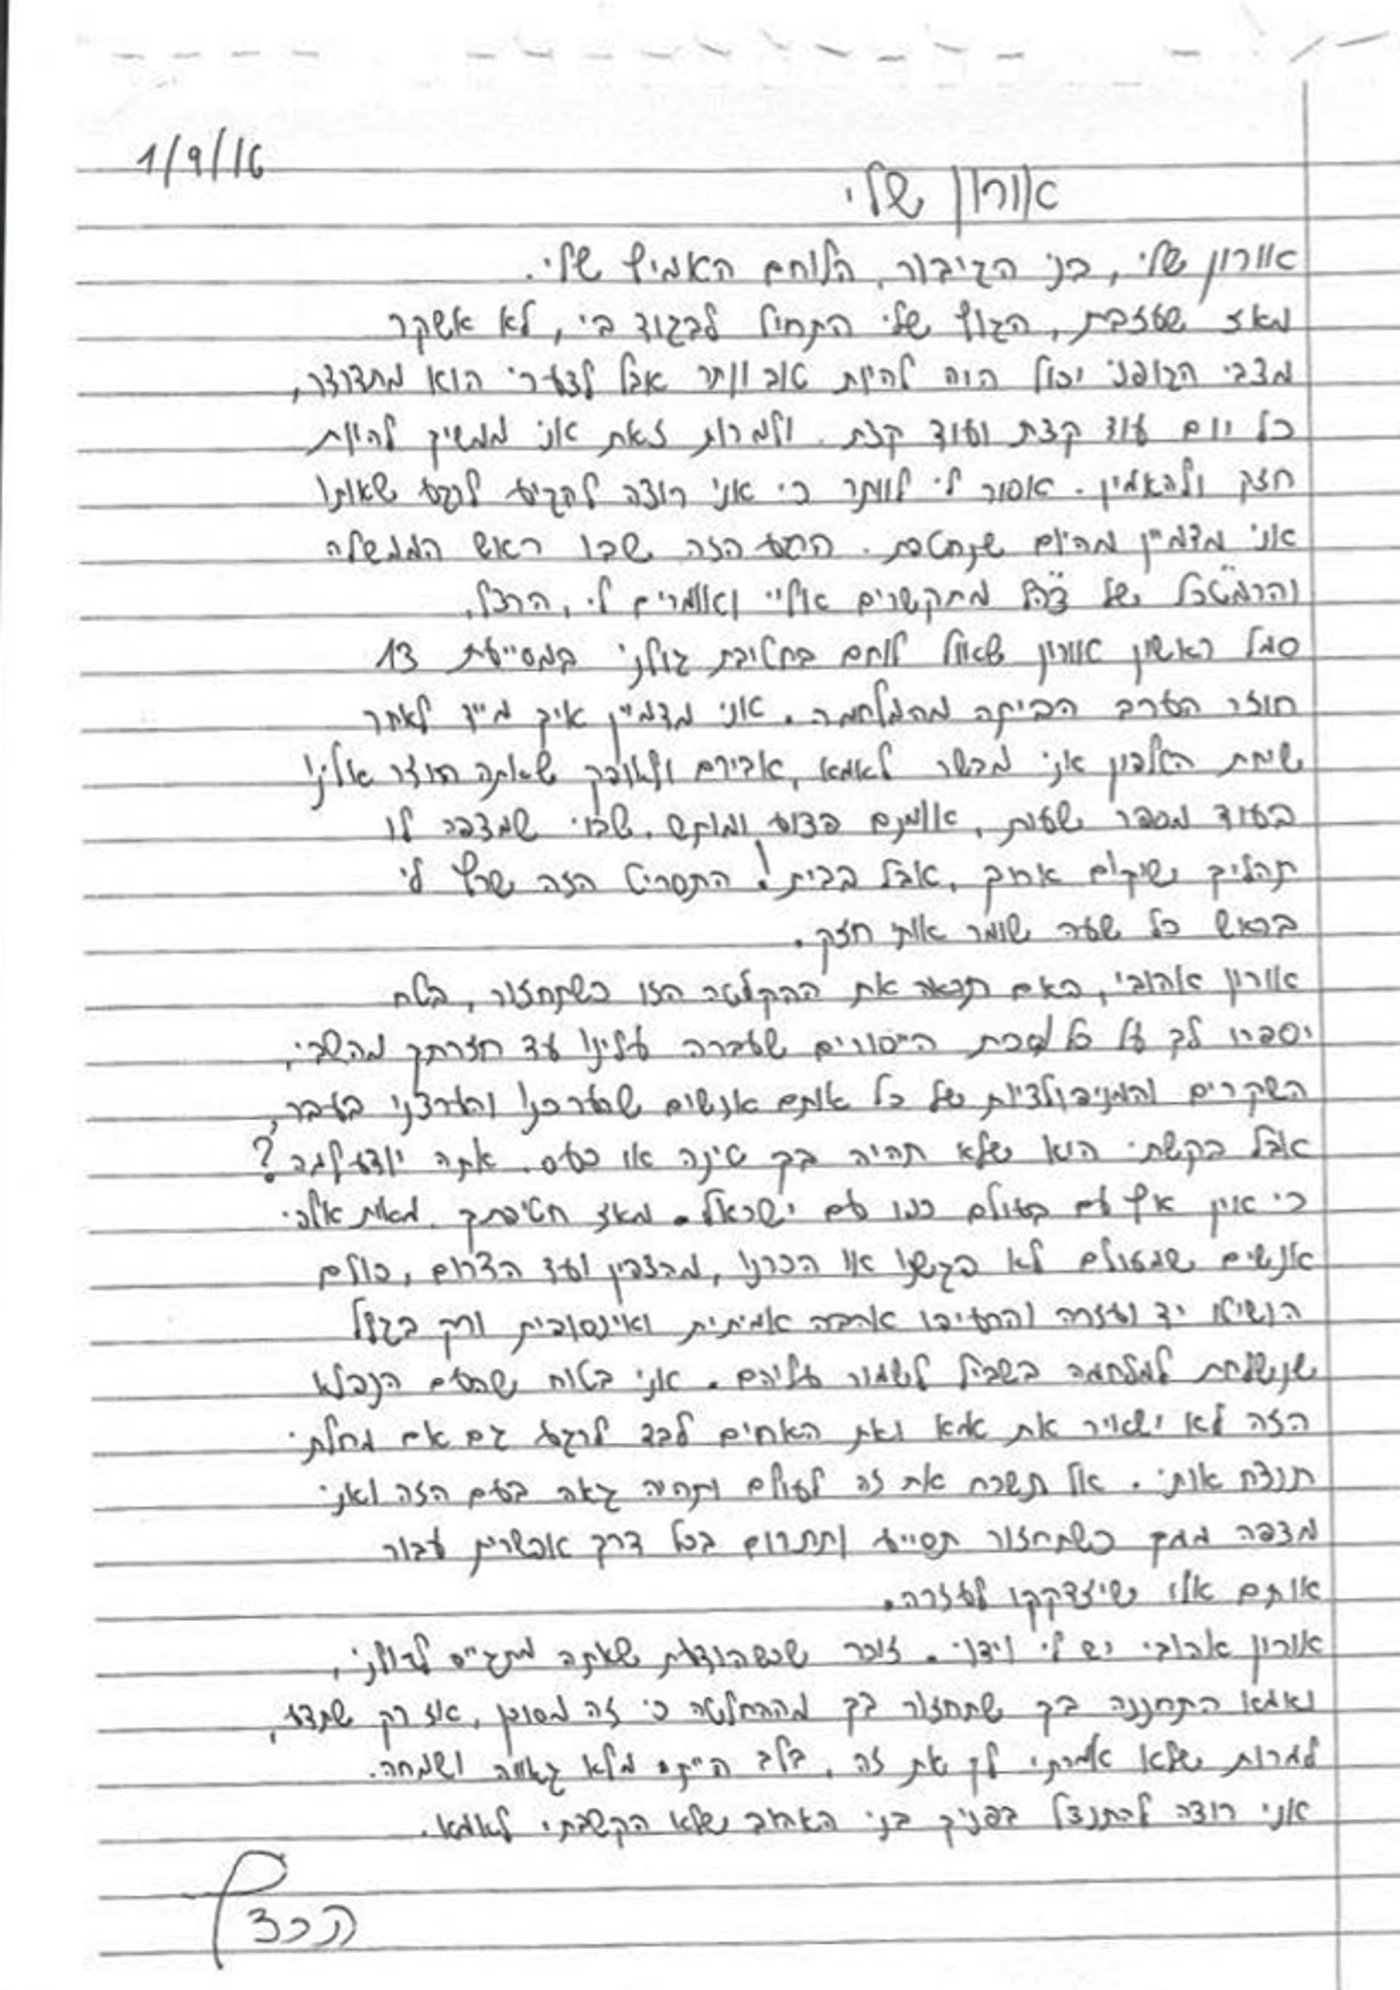 1/9/16
אורון שלי
אורון שלי, בני הגיבור, הלוחם האמיץ שלי.
מאז שעזבת, הגוף שלי התחיל לבגוד בי, לא אשקר
מצבי הגופני יכול היה להיות טוב יותר אבל לצערי הוא מתדרדר,
כל יום עוד קצת ועוד קצת. ולמרות זאת אני ממשיך להיות
חזק ולהאמין. אסור לי לוותר כי אני רוצה להגיע לרגע שאותו
אני מדמיין מהיום שנחטפת. הרגע הזה שבו ראש הממשלה
והרמטכ"ל של צה"ל מתקשרים אליי ואומרים לי, הרצל,
סמל ראשון אורון שאול לוחם בחטיבת גולני במסייעת 13
חוזר הערב הביתה מהמלחמה. אני מדמיין איך מייד לאחר
שיחת הטלפון אני מבשר לאמא, אבירם ולאופק שאתה חוזר אלינו
בעוד מספר שעות, אומנם פצוע ומותש, שבוי שמצפה לו
תהליך שיקום ארוך, אבל בבית! התסריט הזה שרץ לי
בראש כל שעה שומר אותי חזק.
אורון אהובי, באם תראה את ההקלטה הזו כשתחזור, בטח
יספרו לך על כל מסכת הייסורים שעברה עלינו עד חזרתך מהשבי,
השקרים והמניפולציות של כל אותם אנשים שהערכנו והערצנו בעבר,
אבל בקשתי היא שלא תהיה בך טינה או כעס. אתה יודע למה?
כי אין אף עם בעולם כמו עם ישראל. מאז חטיפתך, מאות אלפי
אנשים שמעולם לא פגשנו או הכרנו, מהצפון ועד הדרום, כולם
הושיטו יד ועזרה והרעיפו אהבה אמיתית ואינסופית ורק בגלל
שנשלחת למלחמה בשביל לשמור עליהם. אני בטוח שהעם הנפלא
הזה לא ישאיר את אמא ואת האחים לבד לרגע גם אם מחלתי
תנצח אותי. אל תשכח את זה לעולם ותהיה גאה בעם הזה ואני
מצפה ממך כשתחזור תסייע ותתרום בכל דרך אפשרית עבור
אותם אלו שיזדקקו לעזרה.
אורון אהובי יש לי וידוי. זוכר שכשהודעת שאתה מתגייס לגולני,
ואמא התחננה בך שתחזור בך מההחלטה כי זה מסוכן, אז רק שתדע,
למרות שלא אמרתי לך את זה, בלב הייתי מלא גאווה ושמחה.
אני רוצה להתנצל בפניך בני האהוב שלא הקשבתי לאמא.